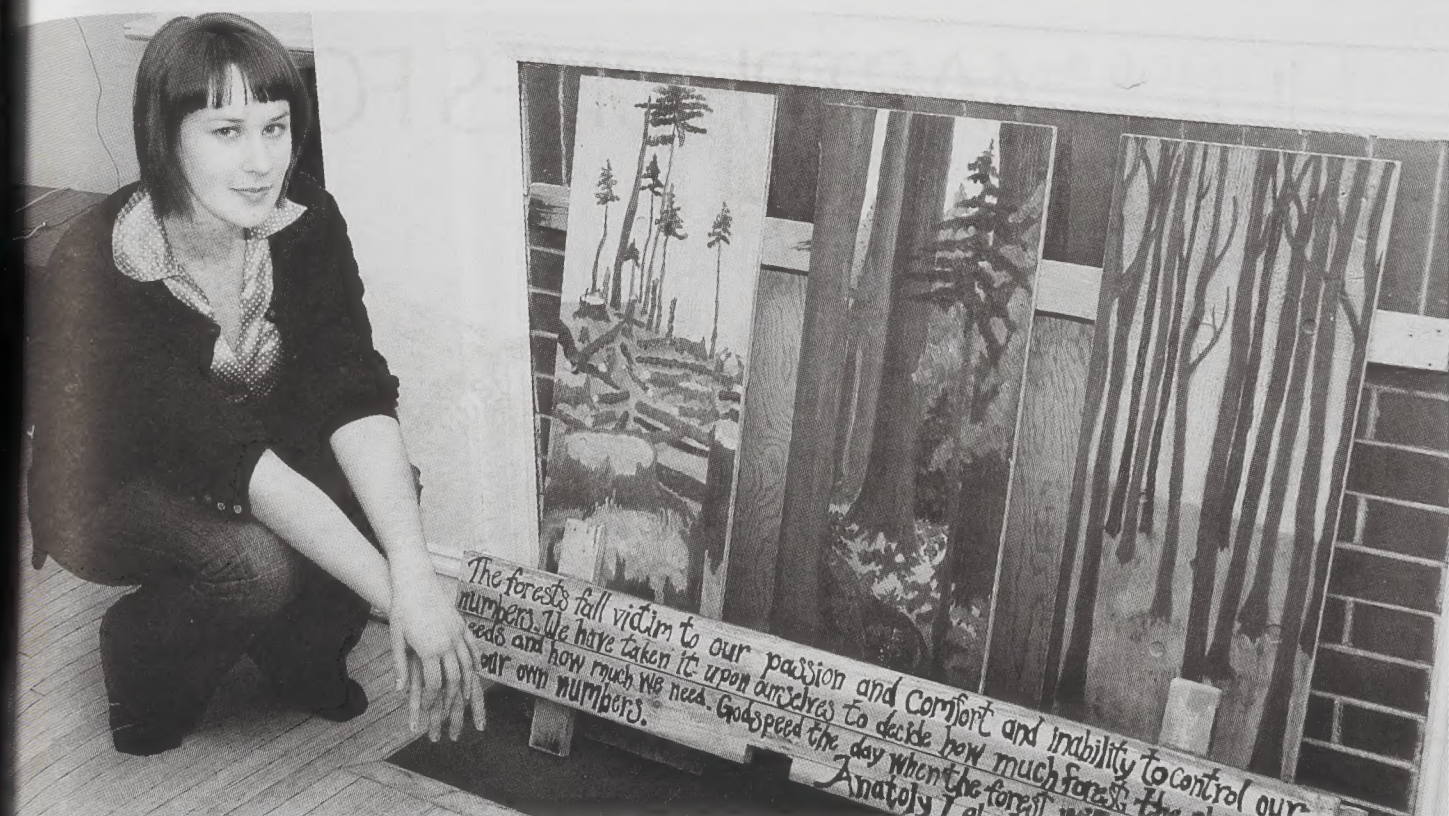 The forests fall victim to our passion and comfort and inability to control our
numbers. We have taken it upon ourselves to decide how much forest the
eeds and how much we need. Godspeed the day when the forest
our own numbers.
Anatoly